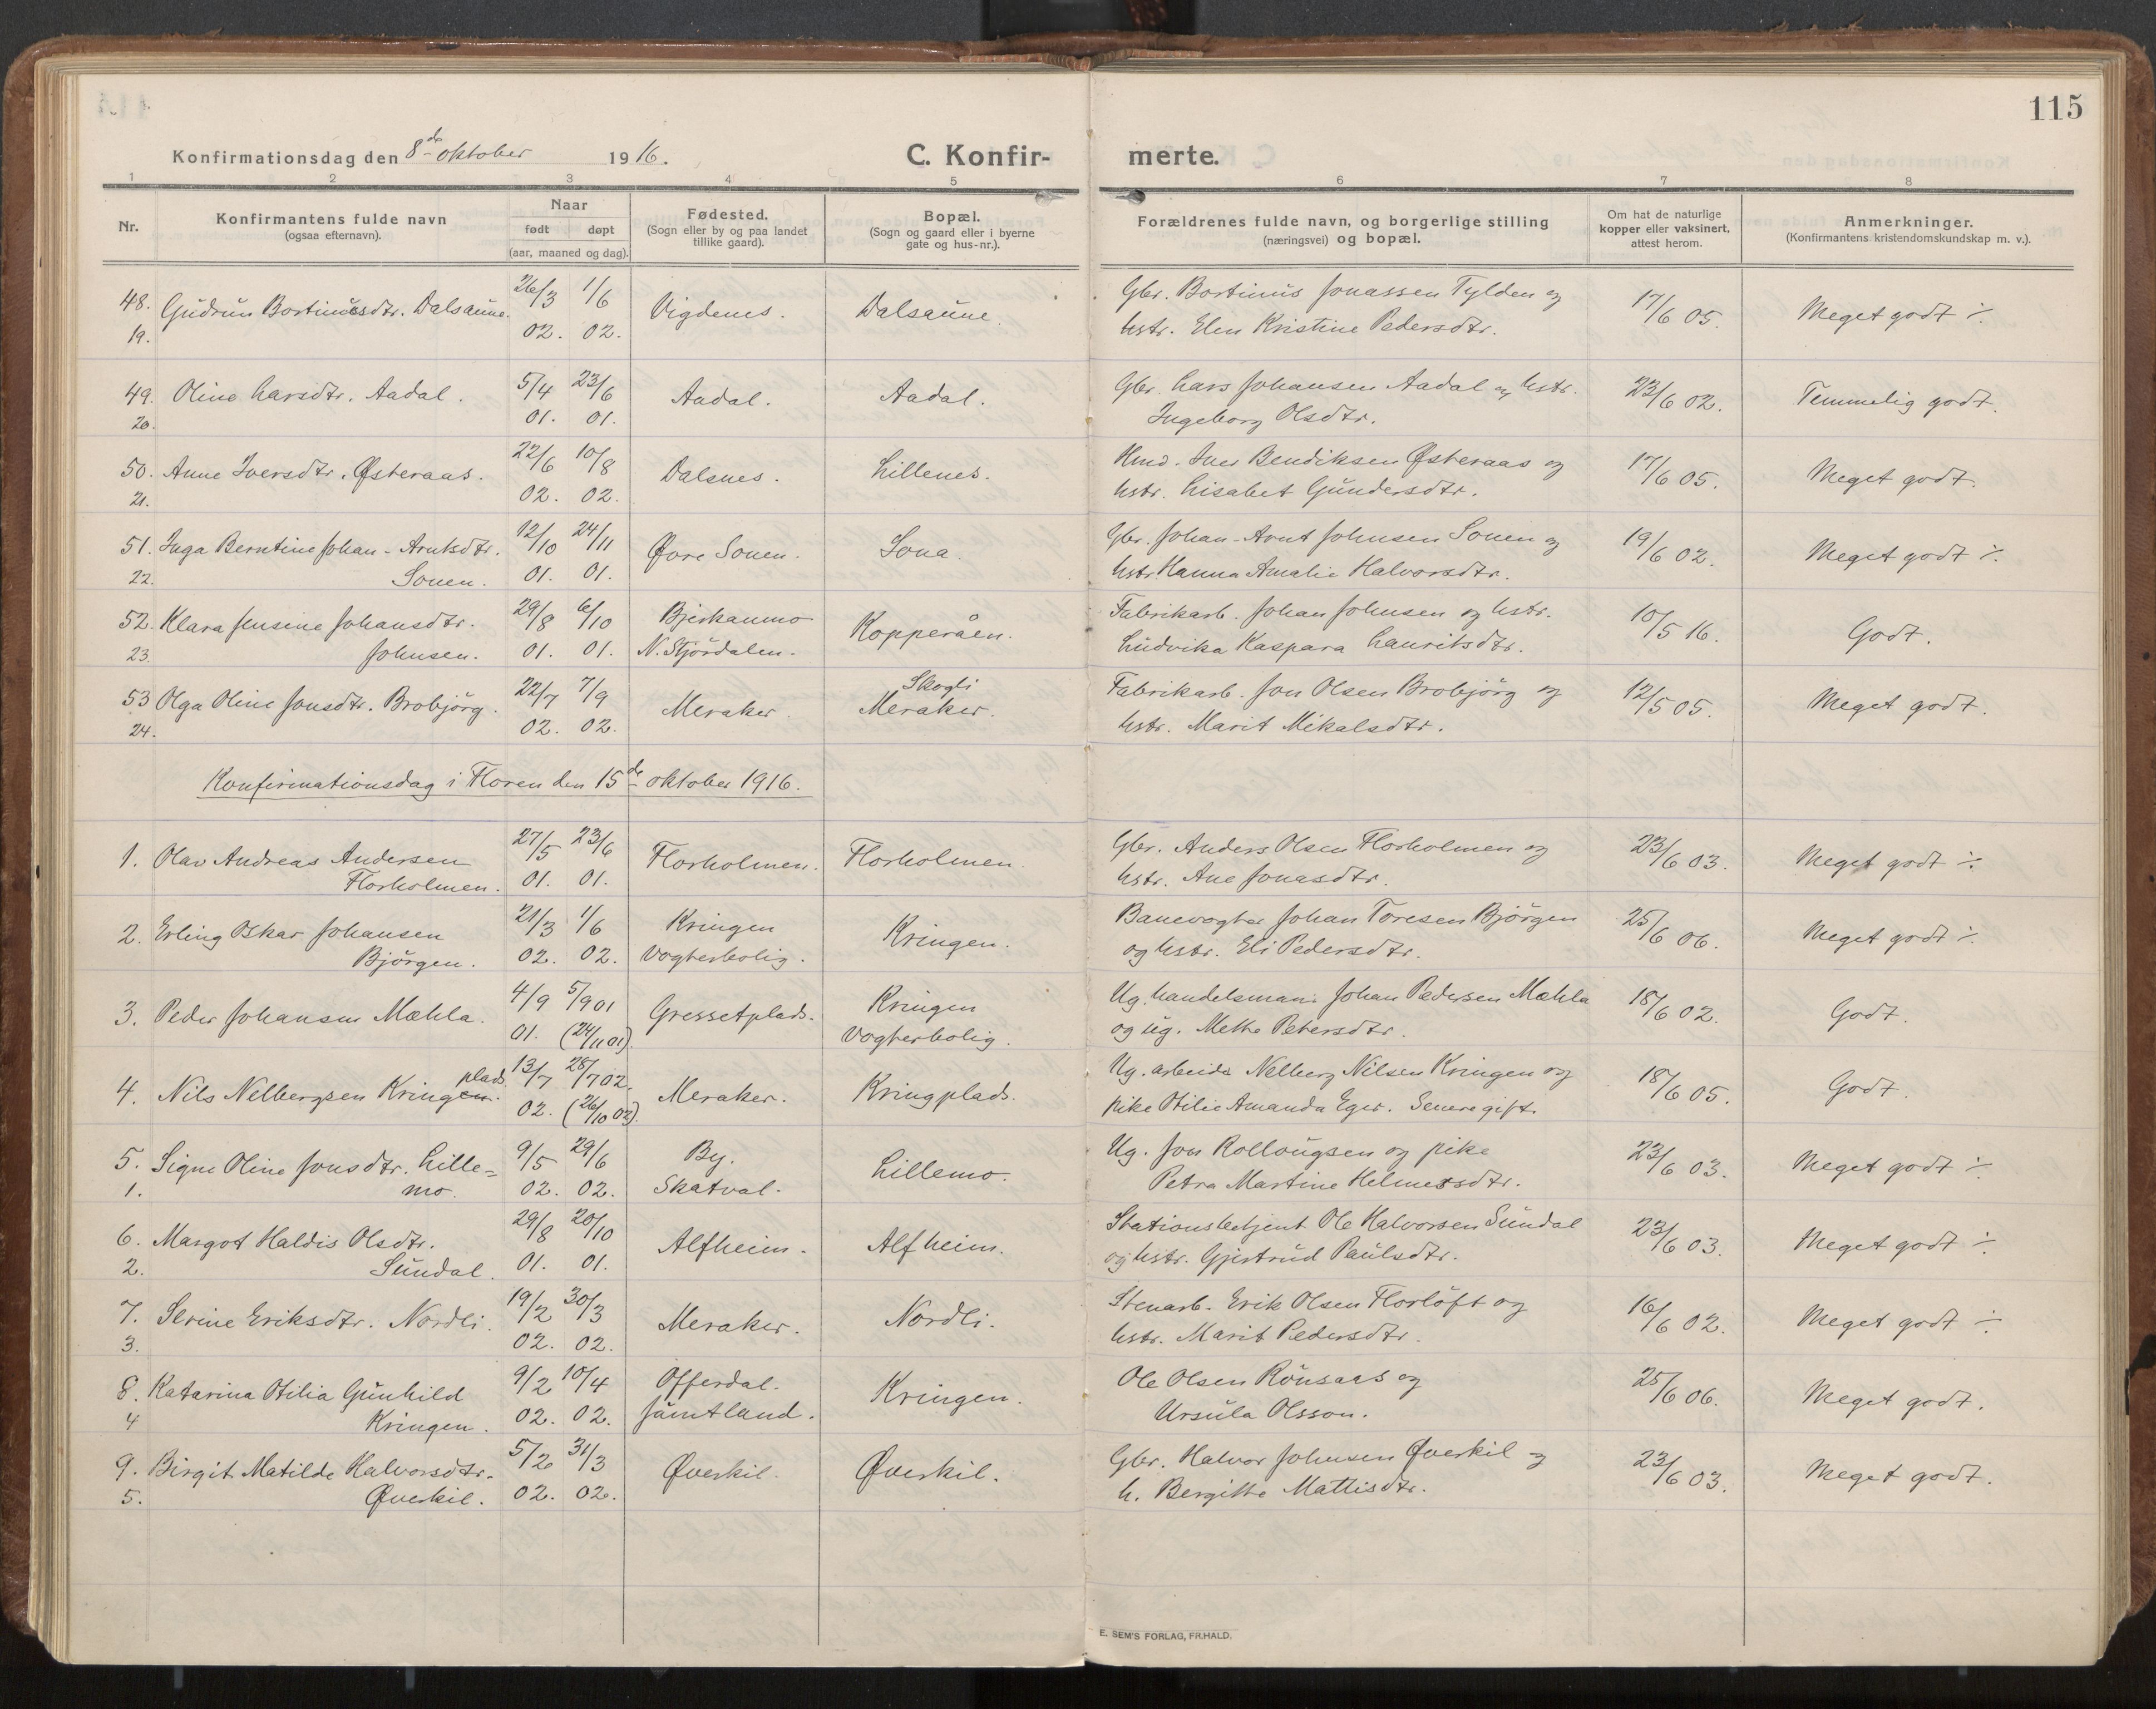 115
Konfirmationsdag den 8de oktober 1916.
C. Konfir-
merte.
1 2 3 4 5 6 7 8
Nr.
Konfirmantens fulde navn
(ogsaa efternavn).
Naar
født døpt
(aar, maaned og dag).
Fødested.
(Sogn eller by og paa landet
tillike gaard).
Bopæl.
(Sogn og gaard eller i byerne
gate og hus-nr.).
Forældrenes fulde navn, og borgerlige stilling
(næringsvei) og bopæl.
Om hat de naturlige
kopper eller vaksinert,
attest herom.
Anmerkninger.
(Konfirmantens kristendomskundskap m. v.).
48. Gudrun Bortinusdtr. Dalsaune. 26/3 1/6 Vigdenes. Dalsaune. Gbr. Bortinus Jonassen Tylden og 17/6 05. Meget godt ·/.
19. 02. 02. hstr. Elen Kristine Pedersdtr.
49. Oline Larsdtr. Aadal. 5/4 23/6 Aadal. Aadal. Gbr. Lars Johansen Aadal og hstr. 23/6 02. Temmelig godt.
20. 01. 01. Ingeborg Olsdtr.
50. Anne Iversdtr. Østeraas. 22/6 10/8 Dalsnes. Lillenes. Hmd. Iver Bendiksen Østeraas og 17/6 05. Meget godt.
21. 02. 02. hstr. Lisabet Gundersdtr.
51. Inga Berntine Johan-Arntsdtr. 12/10 24/11 Øvre Sonen. Sona. Gbr. Johan-Arnt Johnsen Sonen og 19/6 02. Meget godt ·/.
22. Sonen. 01. 01. hstr. Hanna Amalie Halvorsdtr.
52. Klara Jensine Johansdtr. 29/8 6/10 Bjerkanmo Kopperåen. Fabrikarb. Johan Johnsen og hstr. 10/5 16. Godt.
23. Johnsen. 01. 01. N. Stjördalen. Ludvika Kaspara Lauritsdtr.
53 Olga Oline Jonsdtr. Brobjörg. 22/7 7/9 Meraker. Skogli Meraker. Fabrikarb. Jon Olsen Brobjörg og 12/5 05. Meget godt.
24. 02. 02. hstr. Marit Mikalsdtr.
Konfirmationsdag i Floren den 15de oktober 1916.
1. Olav Andreas Andersen 27/5 23/6 Florholmen. Florholmen. Gbr. Anders Olsen Florholmen og 23/6 03. Meget godt ·/.
Florholmen. 01. 01. hstr. Ane Jonasdtr.
2. Erling Oskar Johansen 21/3 1/6 Kringen Kringen. Banevogter Johan Toresen Bjørgen 25/6 06. Meget godt ·/.
Bjørgen. 02. 02. vogterbolig. og hstr. Eli Pedersdtr.
3. Peder Johansen Mæhla. 4/9 5/9 01 Gressetplads. Kringen Ug. handelsmann Johan Pedersen Mæhla 18/6 02. Godt.
01. (24/11 01). Vogterbolig. og ug. Mette Petersdtr.
4. Nils Nelbergsen Kringen. plads. 13/7 28/7 02. Meraker. Kringplads. Ug. arbeider Nelberg Nilsen Kringen og 18/6 05. Godt.
02. (26/10 02). pike Otilie Amanda Eger. Senere gift.
5. Signe Oline Jonsdtr. Lille= 9/5 29/6 By. Lillemo. Ug. Jon Rollougsen og pike 23/6 03. Meget godt ·/.
1. mo. 02. 02. Skatval. Petra Martine Helmersdtr.
6. Margot Haldis Olsdtr. 29/8 20/10 Alfheim. Alfheim. Stationsbetjent Ole Halvorsen Sundal 23/6 03. Meget godt ·/.
2. Sundal. 01. 01. og hstr. Gjertrud Paulsdtr.
7. Serine Eriksdtr. Nordli. 19/2 30/3 Meraker. Nordli. Stenarb. Erik Olsen Florlöft og 16/6 02. Meget godt ·/.
3. 02. 02. hstr. Marit Pedersdtr.
8. Katarina Otilia Gunhild 9/2 10/4 Offerdal. Kringen. Ole Olsen Rönsaas og 25/6 06. Meget godt.
4 Kringen. 02. 02. Jämtland. Ursula Olsson.
9. Birgit Matilde Halvorsdtr. 5/2 31/3 Øverkil. Øverkil. Gbr. Halvor Johnsen Øverkil og 23/6 03. Meget godt.
5. Øverkil. 02. 02. h. Bergitte Mattisdtr.
E. SEM'S FORLAG, FR.HALD.